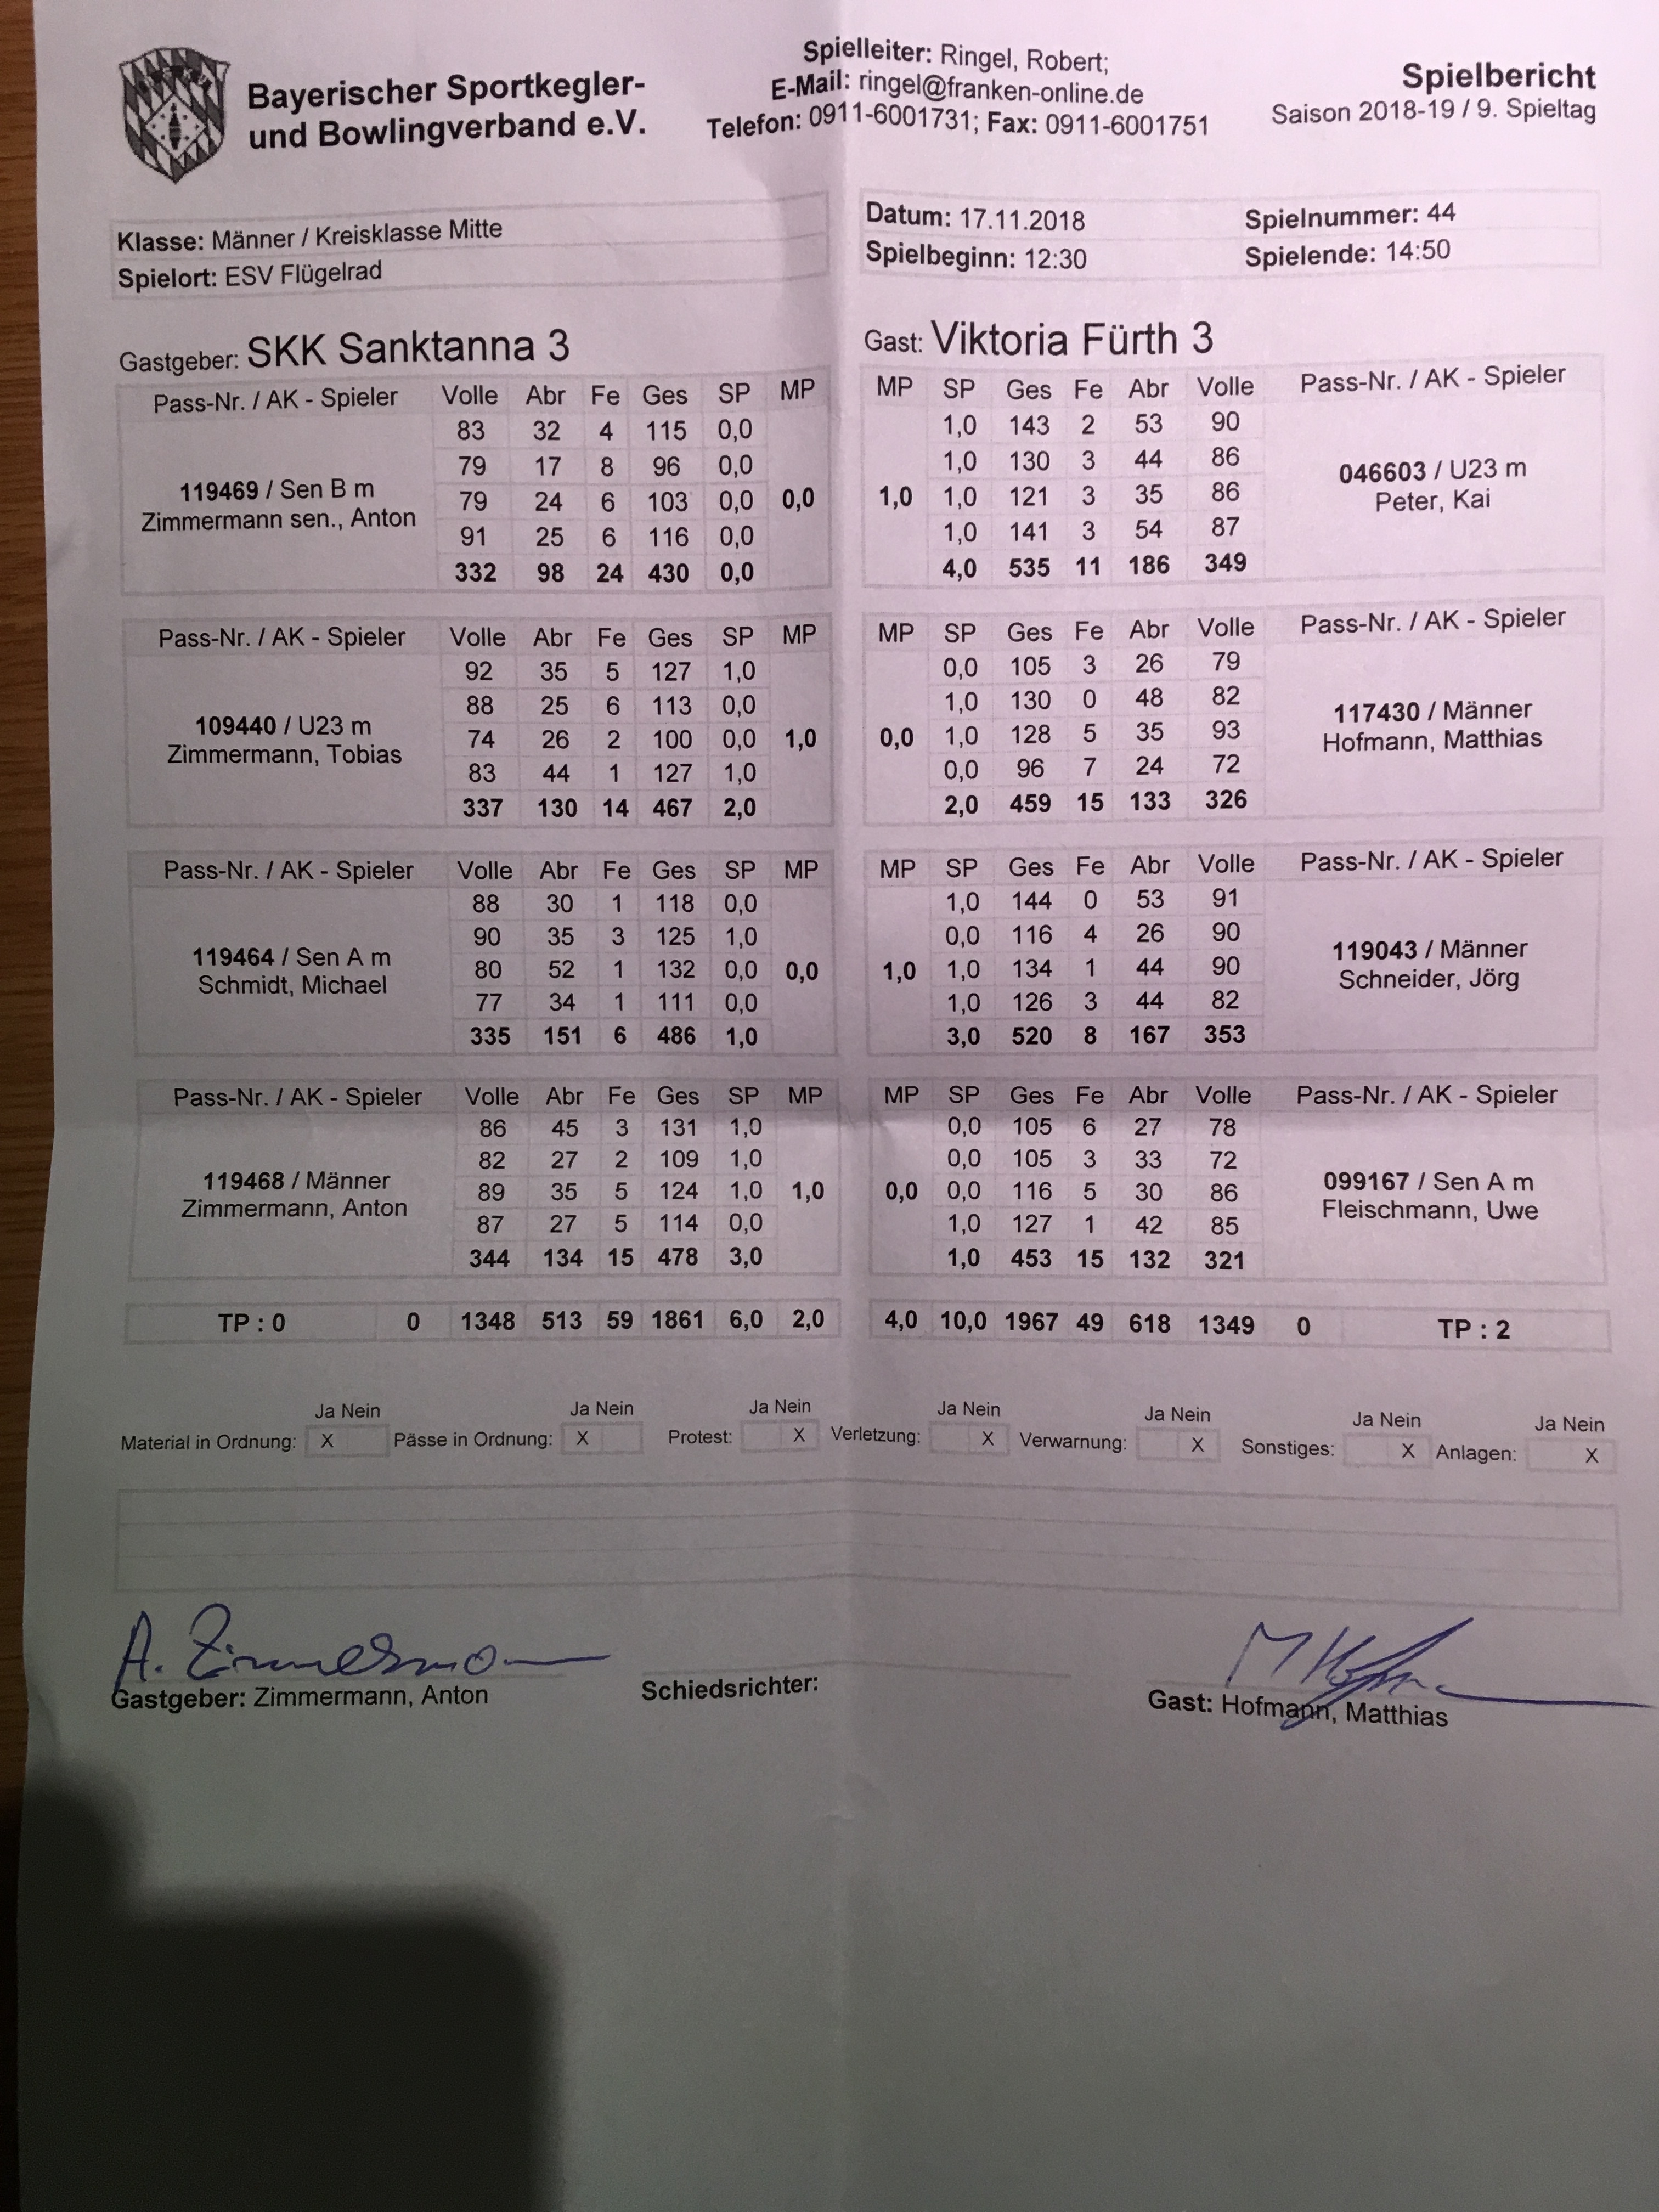 Bayerischer Sportkegler-
und Bowlingverband e.V.
Spielleiter: Ringel, Robert;
E-Mail: ringel@franken-online.de
Telefon: 0911-6001731; Fax: 0911-6001751
Spielbericht
Saison 2018-19 / 9. Spieltag
Klasse: Männer / Kreisklasse Mitte
Spielort: ESV Flügelrad
Datum: 17.11.2018 Spielnummer: 44
Spielbeginn: 12:30 Spielende: 14:50
Gastgeber: SKK Sanktanna 3 Gast: Viktoria Fürth 3
Pass-Nr. / AK - Spieler Volle Abr Fe Ges SP MP MP SP Ges Fe Abr Volle Pass-Nr. / AK - Spieler
83 32 4 115 0,0 1,0 143 2 53 90
79 17 8 96 0,0 1,0 130 3 44 86
119469 / Sen B m 046603 / U23 m
79 24 6 103 0,0 0,0 1,0 1,0 121 3 35 86
Zimmermann sen., Anton Peter, Kai
91 25 6 116 0,0 1,0 141 3 54 87
332 98 24 430 0,0 4,0 535 11 186 349
Pass-Nr. / AK - Spieler Volle Abr Fe Ges SP MP MP SP Ges Fe Abr Volle Pass-Nr. / AK - Spieler
92 35 5 127 1,0 0,0 105 3 26 79
88 25 6 113 0,0 1,0 130 0 48 82
109440 / U23 m 117430 / Männer
74 26 2 100 0,0 1,0 0,0 1,0 128 5 35 93
Zimmermann, Tobias Hofmann, Matthias
83 44 1 127 1,0 0,0 96 7 24 72
337 130 14 467 2,0 2,0 459 15 133 326
Pass-Nr. / AK - Spieler Volle Abr Fe Ges SP MP MP SP Ges Fe Abr Volle Pass-Nr. / AK - Spieler
88 30 1 118 0,0 1,0 144 0 53 91
90 35 3 125 1,0 0,0 116 4 26 90
119464 / Sen A m 119043 / Männer
80 52 1 132 0,0 0,0 1,0 1,0 134 1 44 90
Schmidt, Michael Schneider, Jörg
77 34 1 111 0,0 1,0 126 3 44 82
335 151 6 486 1,0 3,0 520 8 167 353
Pass-Nr. / AK - Spieler Volle Abr Fe Ges SP MP MP SP Ges Fe Abr Volle Pass-Nr. / AK - Spieler
86 45 3 131 1,0 0,0 105 6 27 78
82 27 2 109 1,0 0,0 105 3 33 72
119468 / Männer 099167 / Sen A m
89 35 5 124 1,0 1,0 0,0 0,0 116 5 30 86
Zimmermann, Anton Fleischmann, Uwe
87 27 5 114 0,0 1,0 127 1 42 85
344 134 15 478 3,0 1,0 453 15 132 321
TP : 0 0 1348 513 59 1861 6,0 2,0 4,0 10,0 1967 49 618 1349 0 TP : 2
Ja Nein Ja Nein Ja Nein Ja Nein Ja Nein Ja Nein Ja Nein
Material in Ordnung: X Pässe in Ordnung: X Protest: X Verletzung: X Verwarnung: X Sonstiges: X Anlagen: X
A. Zimmermann
Gastgeber: Zimmermann, Anton Schiedsrichter: Gast: Hofmann, Matthias